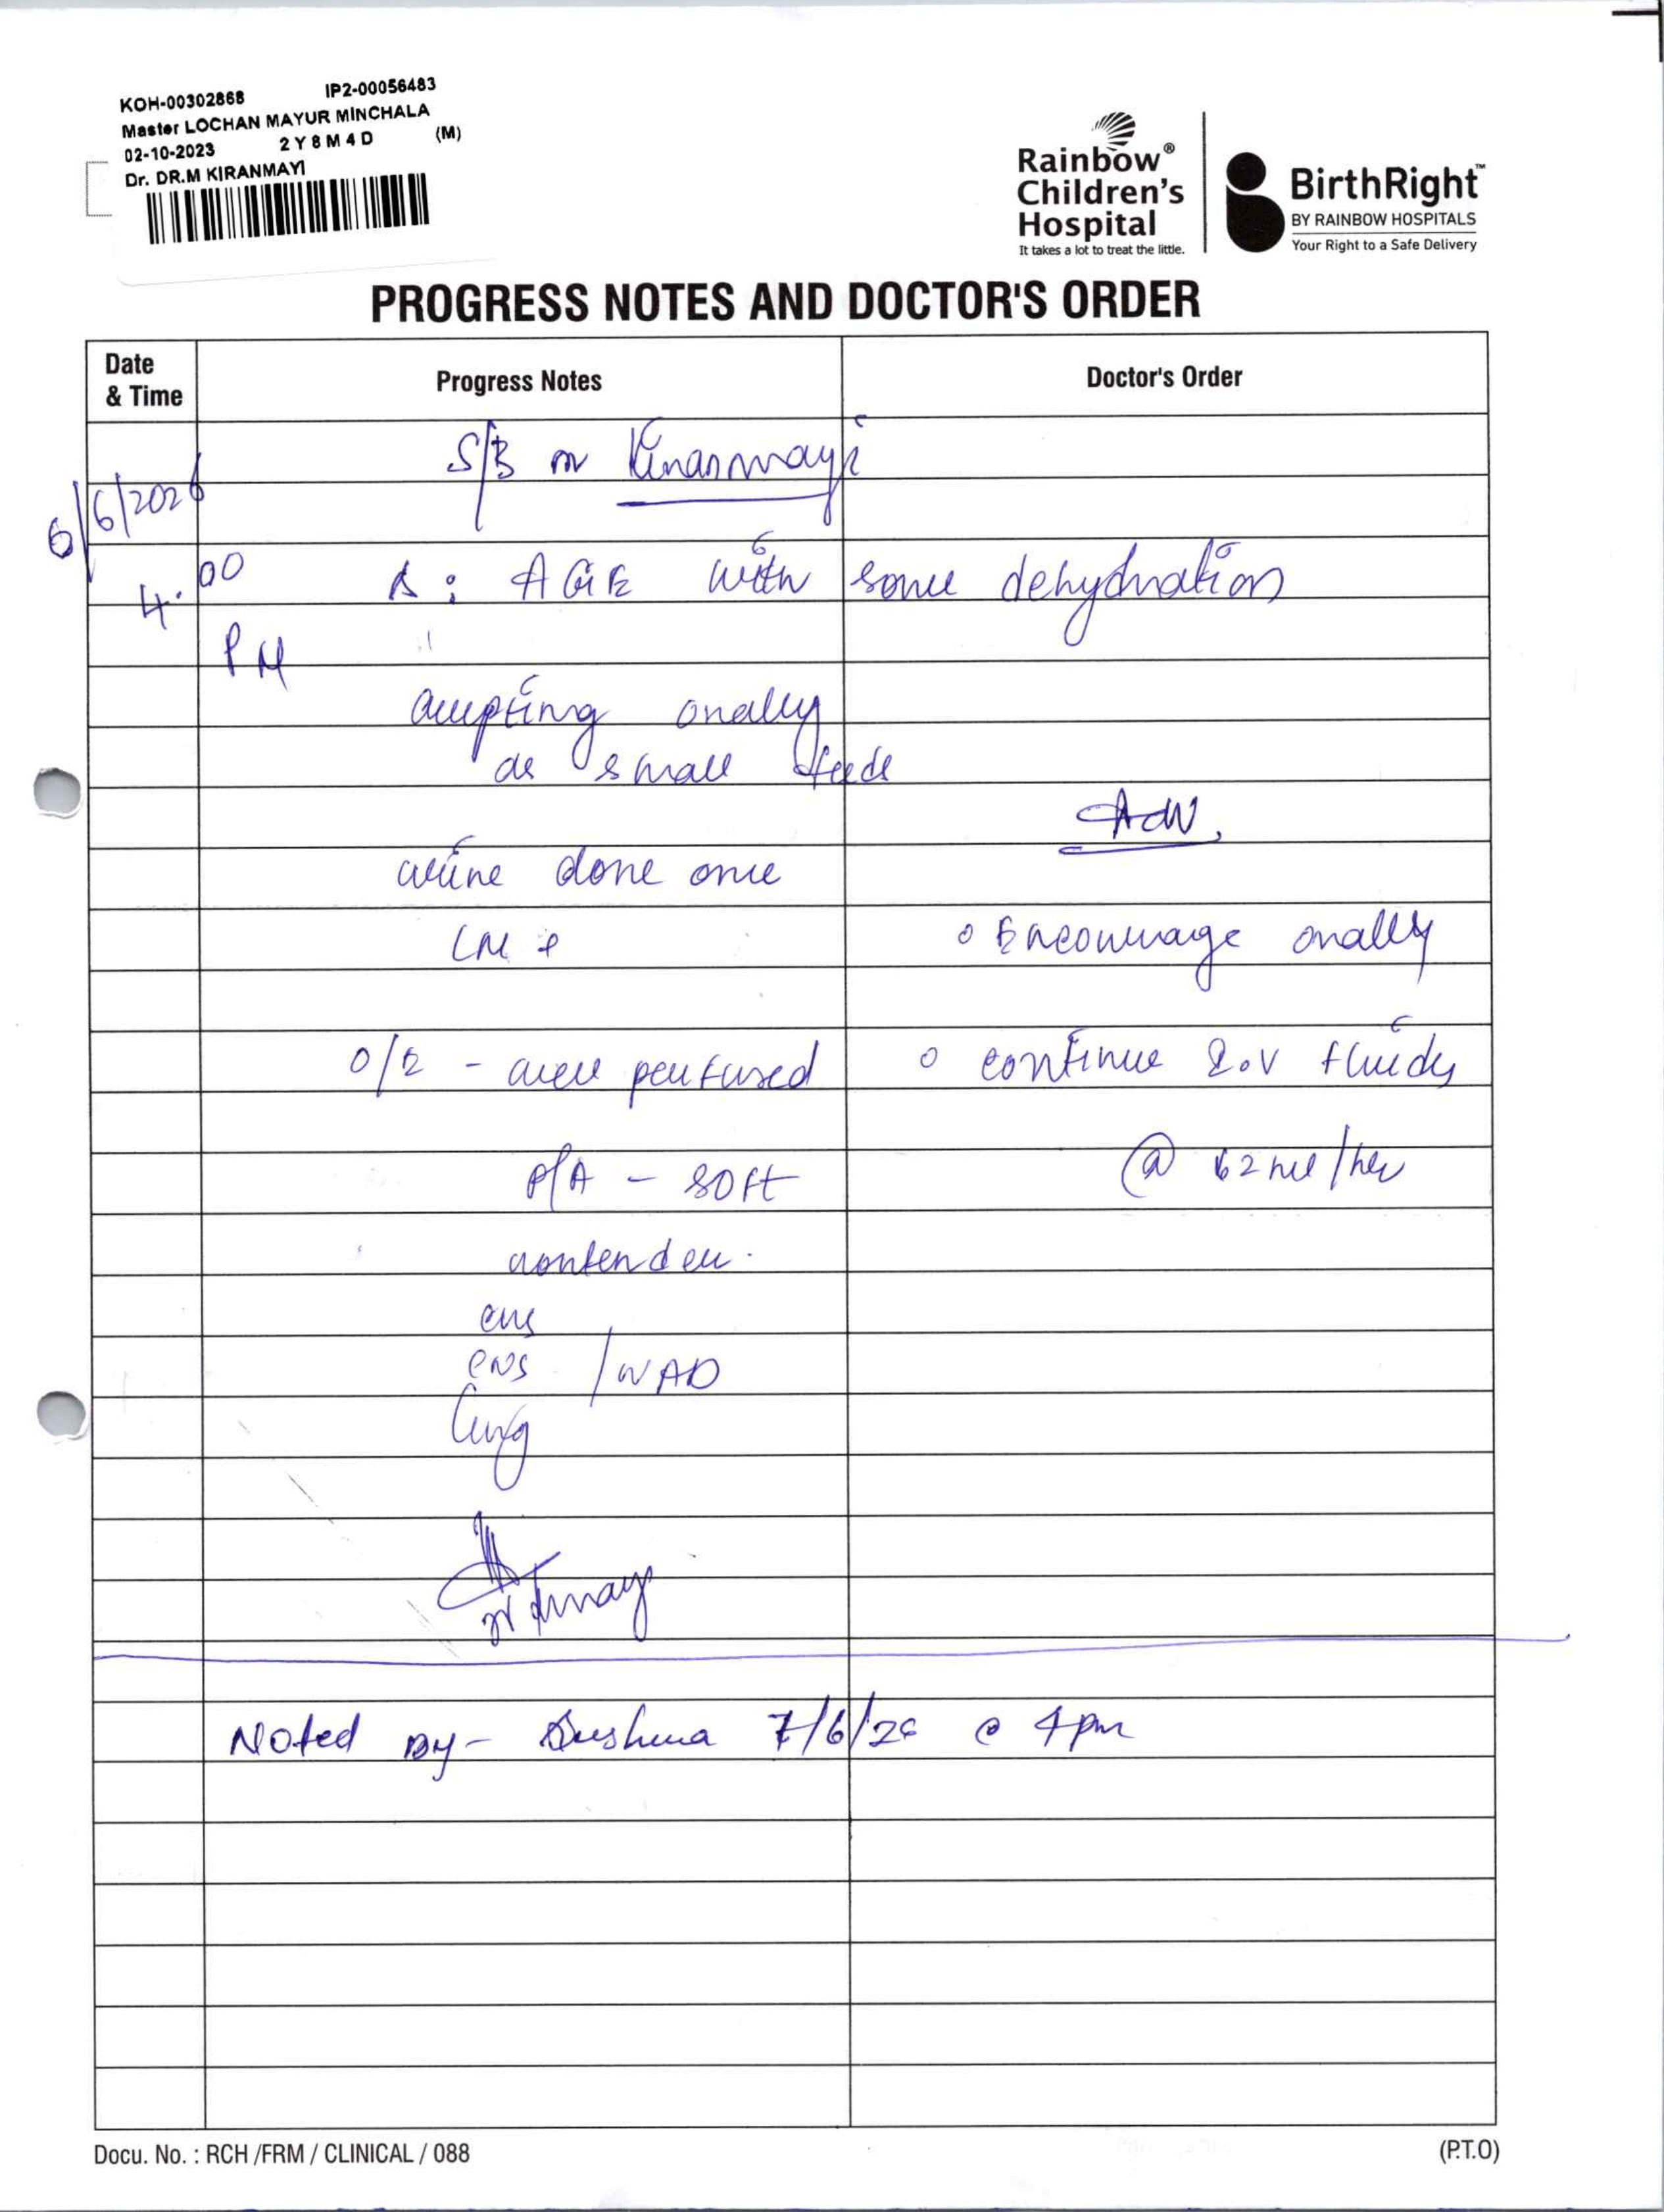 KOH-00302868 IP2-00056483
Master LOCHAN MAYUR MINCHALA
02-10-2023 2 Y 8 M 4 D (M)
Dr. DR.M KIRANMAYI
Rainbow®
Children's
Hospital
It takes a lot to treat the little.
BirthRight™
BY RAINBOW HOSPITALS
Your Right to a Safe Delivery
PROGRESS NOTES AND DOCTOR'S ORDER
Date
& Time
Progress Notes
Doctor's Order
S/B Dr Kiranmayi
6/6/2026
4.00
PM
Δ: AGE with some dehydration
accepting orally
as small feeds
Adv.
urine done once
o Encourage orally
O/E - well perfused
o continue I.V fluids
P/A - soft
@ 62 ml/hr
nontender.
CVS
CNS / NAD
lung
Noted By- Sushma 7/6/26 @ 4pm
Docu. No. : RCH /FRM / CLINICAL / 088
(P.T.O)